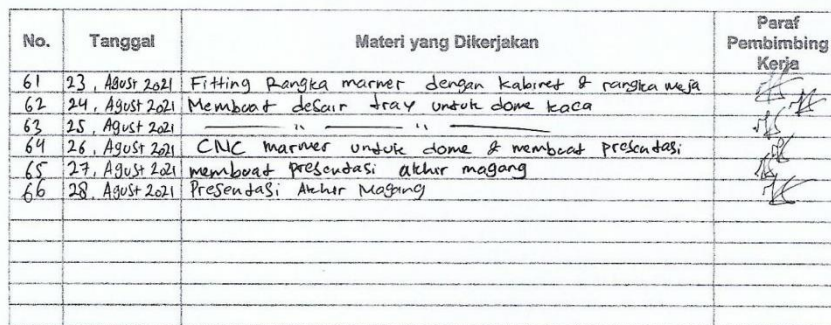 No. Tanggal Materi yang Dikerjakan Paraf Pembimbing Kerja
61 23, Agust 2021 Fitting Rangka marmer dengan kabinet & rangka meja
62 24, Agust 2021 Membuat desain tray untuk dome kaca
63 25, Agust 2021 —— " —— " ——
64 26, Agust 2021 CNC marmer untuk dome & membuat presentasi
65 27, Agust 2021 membuat presentasi akhir magang
66 28, Agust 2021 Presentasi Akhir Magang